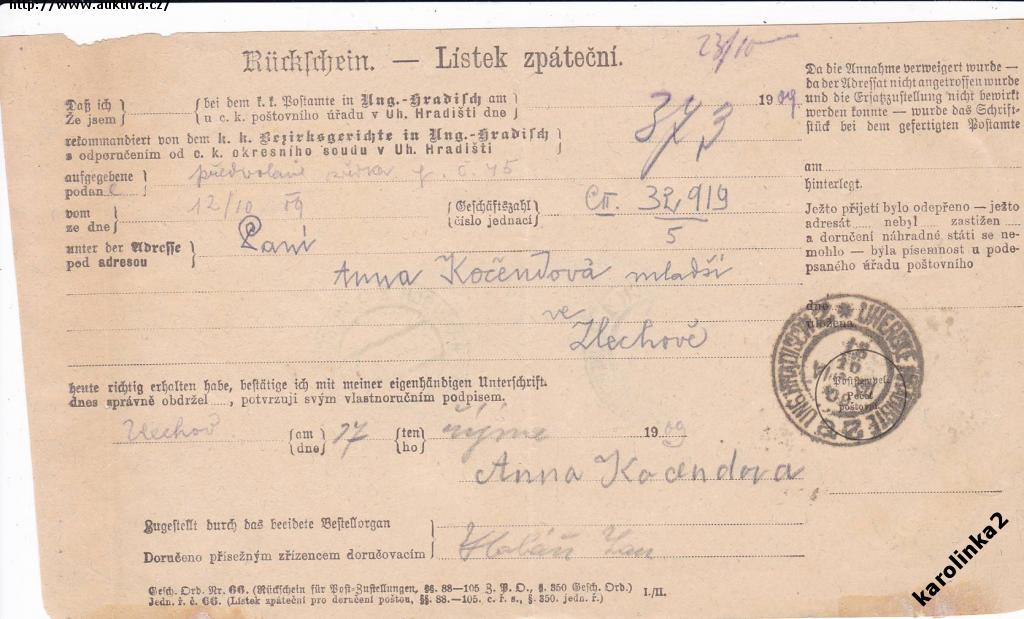 http://www.auktiva.cz/
23/10
Rückschein. — Lístek zpáteční.
Daß ich } { bei dem k. k. Postamte in Ung.-Hradisch am } 373 1909
Že jsem } { u c. k. poštovního úřadu v Uh. Hradišti dne }
rekommandiert von dem k. k. Bezirksgerichte in Ung.-Hradisch
s odporučením od c. k. okresního soudu v Uh. Hradišti
aufgegebene } předvolání č. 45
podané }
vom } 12/10 09 { Geschäftszahl } CII. 329/9
ze dne } { číslo jednací } 5
unter der Adresse } Paní
pod adresou }
Anna Kočendová mladší
ve
Zlechově
heute richtig erhalten habe, bestätige ich mit meiner eigenhändigen Unterschrift.
dnes správně obdržel ....., potvrzuji svým vlastnoručním podpisem.
Zlechov { am } 17 { ten } října 1909
{ dne } { ho }
Anna Kocendova
Zugestellt durch das beeidete Bestellorgan }
Doručeno přísežným zřízencem doručovacím }
Gesch. Ord. Nr. 66. (Rückschein für Post-Zustellungen, §§. 88—105 Z. P. O., §. 350 Gesch. Ord.)
Jedn. ř. č. 66. (Lístek zpáteční pro doručení poštou, §§. 88.—105. c. ř. s., §. 350. jedn. ř.) I./II.
Da die Annahme verweigert wurde —
da der Adressat nicht angetroffen wurde
und die Ersatzzustellung nicht bewirkt
werden konnte — wurde das Schrift-
stück bei dem gefertigten Postamte
am
hinterlegt.
Ježto přijetí bylo odepřeno — ježto
adresát ..... nebyl ..... zastižen
a doručení náhradné státi se ne-
mohlo — byla písemnost u pode-
psaného úřadu poštovního
dne
uložena.
Poststempel.
Pečeť
poštovní.
karolinka2